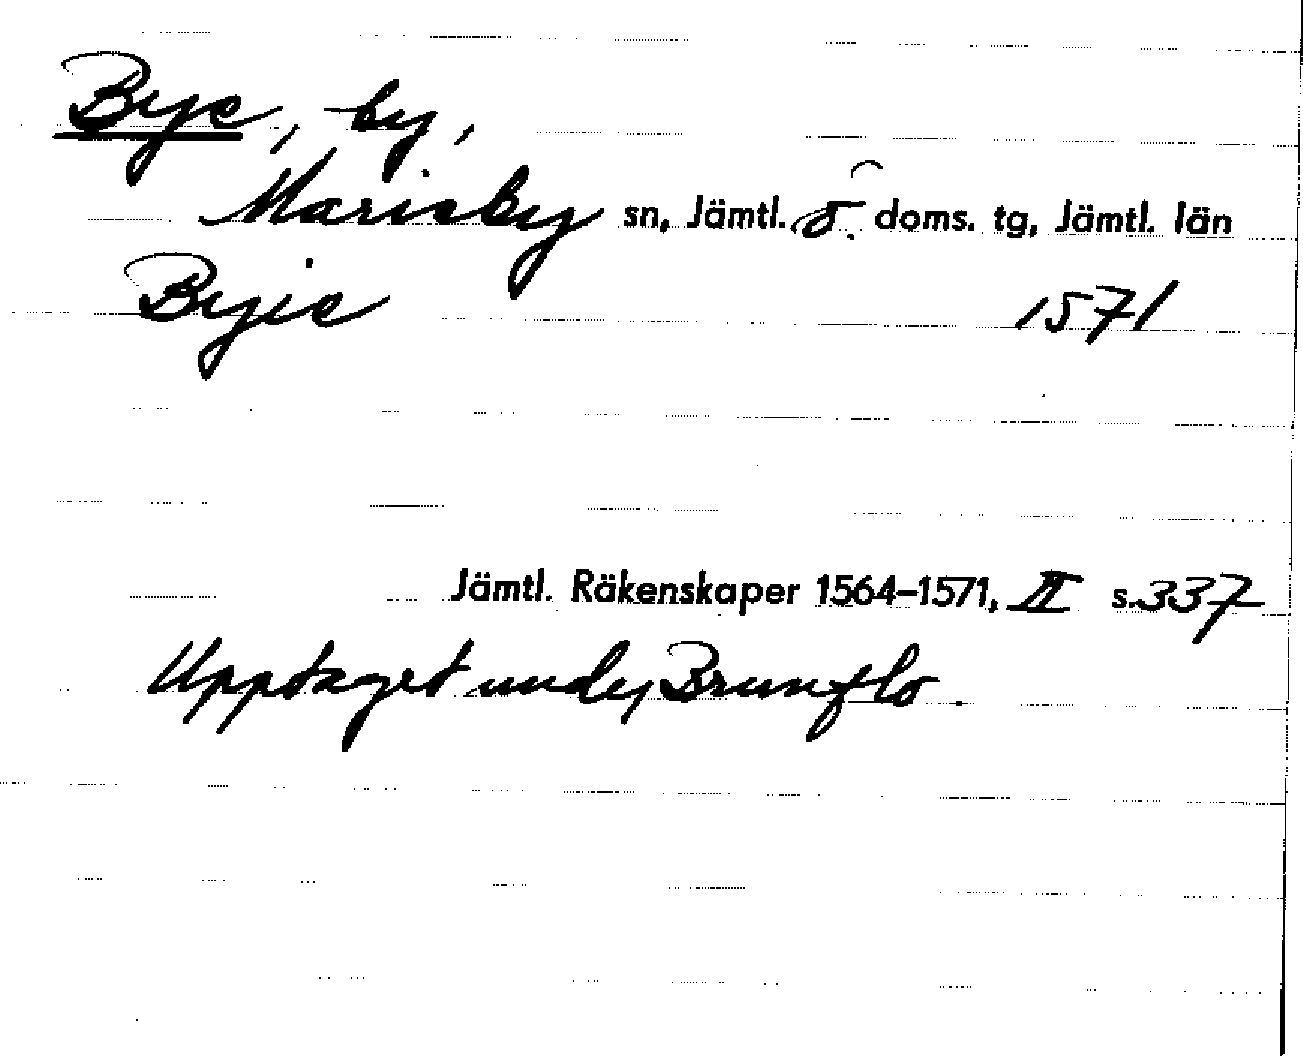 Bye, by,
Marieby sn, Jämtl. ö. doms. tg, Jämtl. län
Byie 1571
Jämtl. Räkenskaper 1564–1571, II s. 337
Upptaget under Brunflo.